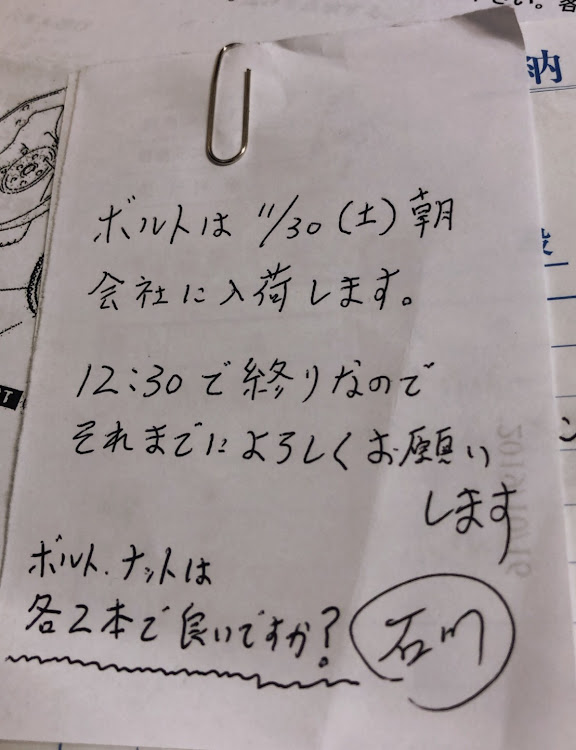 納
ボルトは 11/30(土)朝
会社に入荷します。
12:30で終りなので
それまでによろしくお願い
します
ボルト、ナットは
各2本で良いですか?
石川
2019/10/16
T
ン